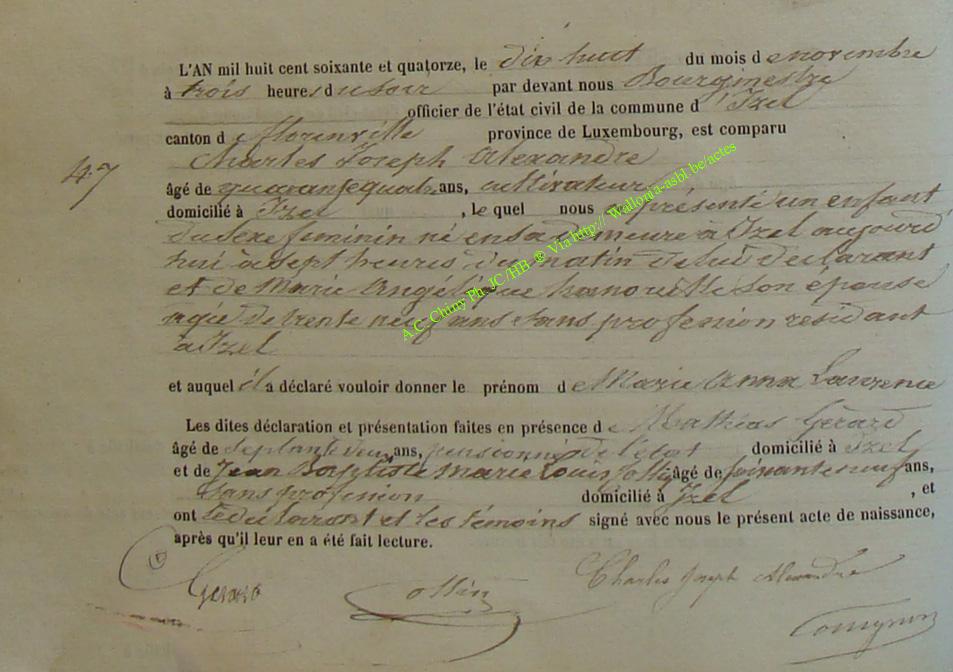 L'AN mil huit cent soixante et quatorze, le dix huit du mois de novembre
à trois heures du soir par devant nous Bourgmestre
officier de l'état civil de la commune d'Izel
canton de florenville province de Luxembourg, est comparu
Charles Joseph Alexandre
47
âgé de quarante quatre ans, cultivateur
domicilié à Izel, le quel nous a présenté un enfant
du sexe feminin né en sa demeure à Izel aujourd
hui à sept heures du matin de lui déclarant
et de Marie Angélique hanorette son épouse
agée de trente neuf ans sans profession residant
à Izel
et auquel il a déclaré vouloir donner le prénom de Marie Anna Laurence
Les dites déclaration et présentation faites en présence de Mathias Gérard
âgé de septante deux ans, pensionné de l'état domicilié à Izel
et de Jean Baptiste Marie Louis ollin âgé de soixante neuf ans,
sans profession domicilié à Izel, et
ont le déclarant et les témoins signé avec nous le présent acte de naissance,
après qu'il leur en a été fait lecture.
Gerard ollin Charles Joseph Alexandre
A.C. Chiny Ph JC/HB ® Via http:// Wallonia-asbl.be/actes